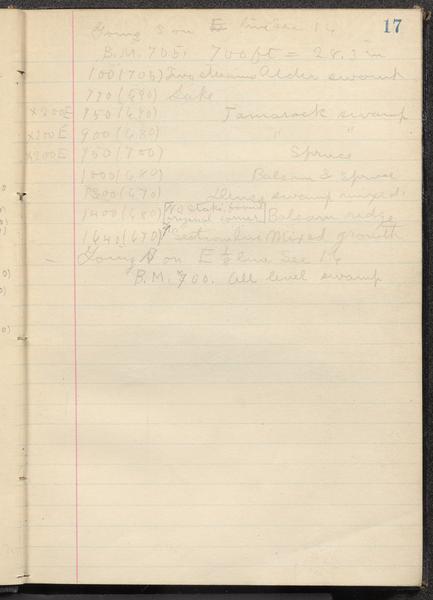 17
Going S on E line Sec 14
B.M. 705, 700 ft = 28.3 in
100 (705) Two streams Alder swamp
770 (690) Lake
X200E 850 (690) Tamarack swamp
X200E 900 (680) " "
X200E 950 (700) Spruce
1000 (680) Balsam & Spruce
1300 (670) swamp mixed
1400 (680) [No stake found original corner] Balsam ridge
1641 (670) Section line Mixed growth
Going N on E ½ line Sec 14
B.M. 700. All level swamp